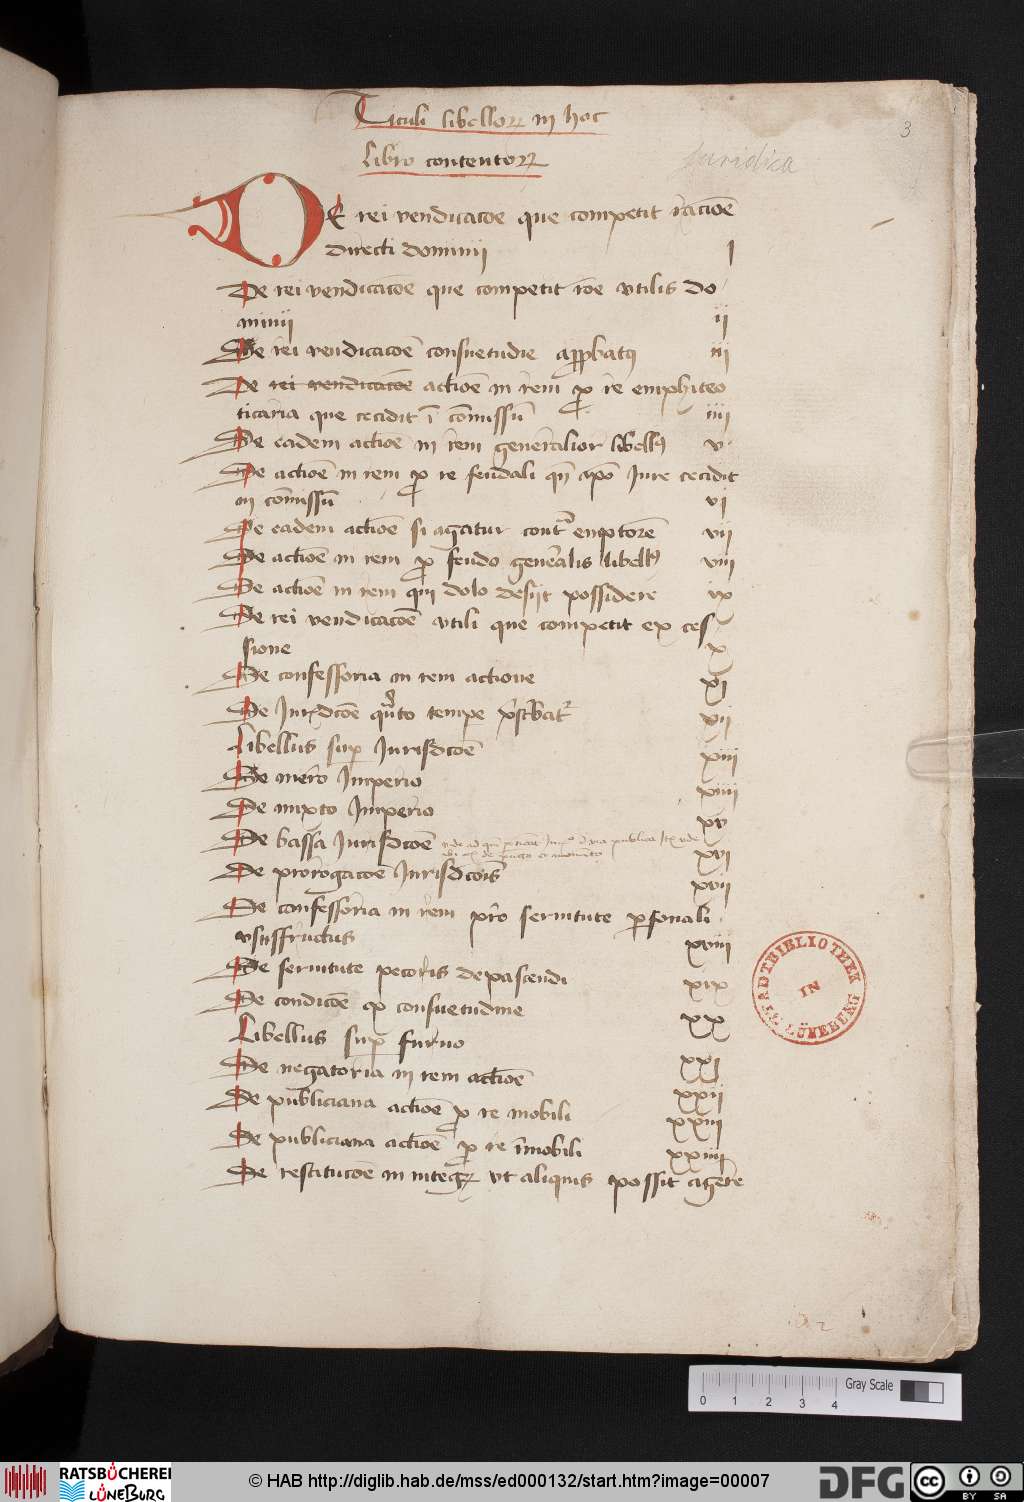 Tituli libellorum in hoc
Libro contentorum
3
Juridica
DE rei vendicacōe que competit racōe
directi dominii I
De rei vendicacōe que competit rōe vtilis do
minii ii
De rei vendicacōe consuetudīe iii
De rei vendicacōe actiōe in rem pro re emphiteo
ticaria que cecidit ī cōmissū iiii
De eadem actiōe in rem generalior libellus v
De actiōe in rem pro re feudali Jure cecidit
in cōmissū vi
De eadem actiōe si agatur contra emptorē vii
De actiōe in rem pro feudo generalis libellus viii
De actiōe in rem qui dolo desijt possidere ix
De rei vendicacōe vtili que competit ex ces
sione x
De confessoria in rem actione xi
De Jurisdcōe xii
Libellus sup Jurisdcōe xiii
De mero Imperio xiiii
De mixto Imperio xv
De bassa Jurisdcōe xvi
De prorogacōe Jurisdcōis xvii
De confessoria in rem pro seruitute personali
vsusfructus xviii
De seruitute pecoris depascendi xix
De condicōe ex consuetudine xx
Libellus sup furno
De negatoria in rem actiōe xxi
De publiciana actiōe pro re mobili xxii
xxiii
De publiciana actiōe pro re īmobili xxiiii
De restitucōe in integrum vt aliquis possit agere
STADTBIBLIOTHEK
IN
LÜNEBURG
0 1 2 3 4 Gray Scale
RATSBÜCHEREI
LÜNEBURG
© HAB http://diglib.hab.de/mss/ed000132/start.htm?image=00007
DFG
cc BY SA